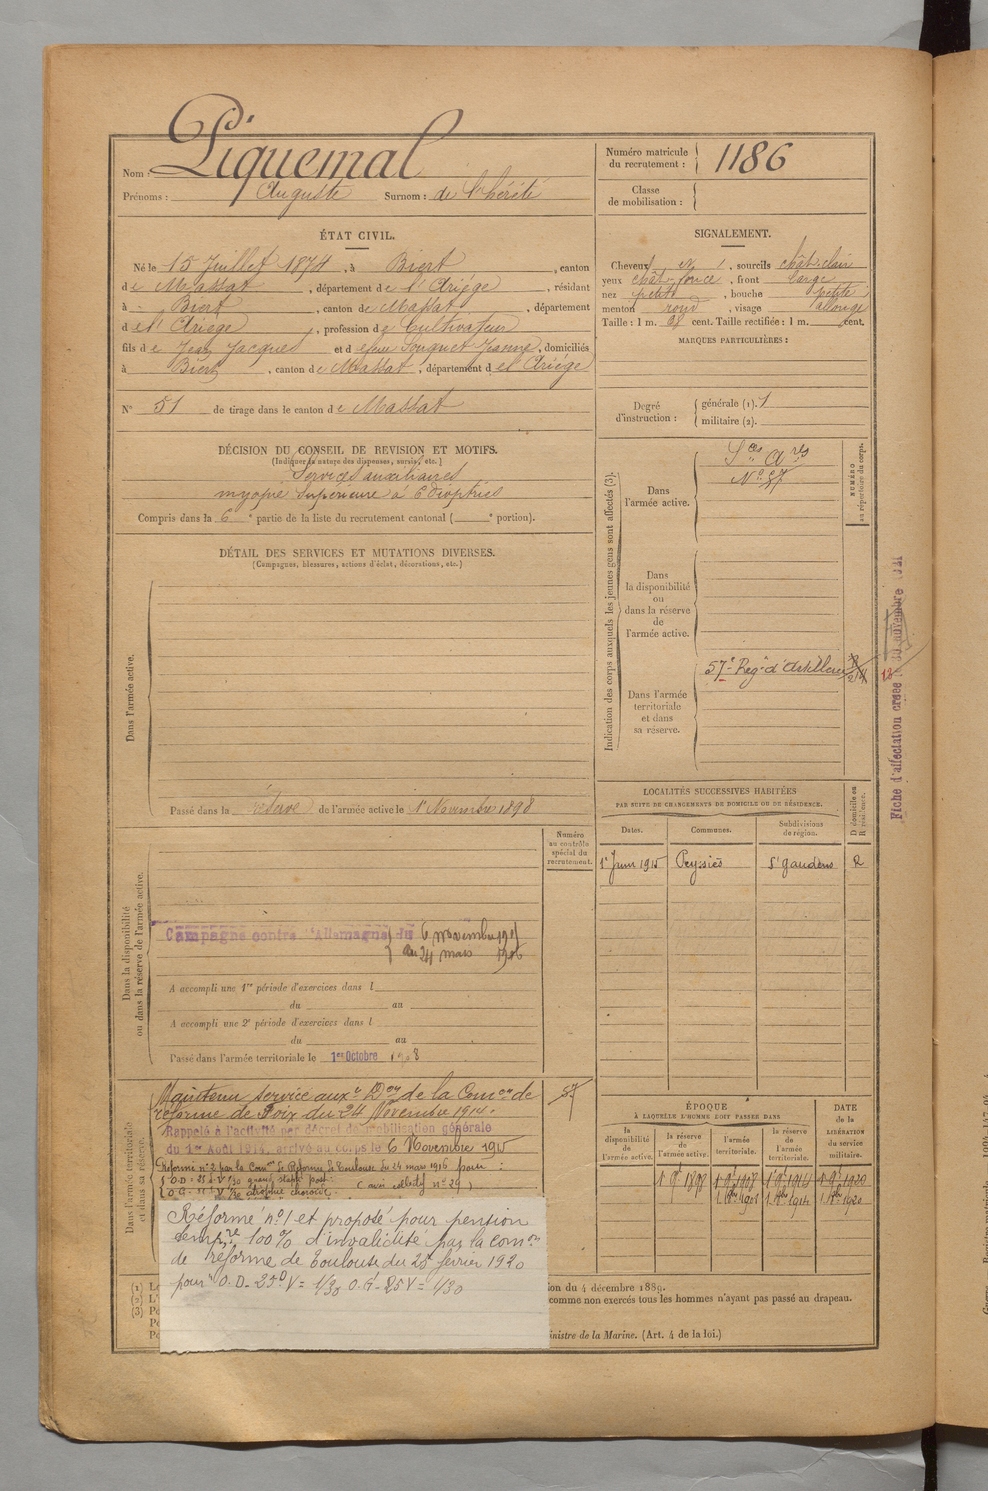 Nom : Piquemal
Prénoms : Auguste Surnom : de l'hérété
Numéro matricule du recrutement : 1186
Classe de mobilisation :
ÉTAT CIVIL.
Né le 15 Juillet 1874, à Biert, canton
de Massat, département de l'Ariège, résidant
à Biert, canton de Massat, département
de l'Ariège, profession de Cultivateur
fils de Jean Jacques et de feue Souquet Jeanne, domiciliés
à Biert, canton de Massat, département de l'Ariège
N° 51 de tirage dans le canton de Massat
SIGNALEMENT.
Cheveux et , sourcils chât. clair
yeux chât. foncé, front large
nez petit, bouche petite
menton rond, visage allongé
Taille : 1 m. cent. Taille rectifiée : 1 m. cent.
MARQUES PARTICULIÈRES :
Degré d'instruction :
générale (1). 1
militaire (2).
DÉCISION DU CONSEIL DE REVISION ET MOTIFS.
(Indiquer la nature des dispenses, sursis, etc.)
Services auxiliaires
myopie supérieure à 6 dioptries
Compris dans la 6e partie de la liste du recrutement cantonal ( e portion).
DÉTAIL DES SERVICES ET MUTATIONS DIVERSES.
(Campagnes, blessures, actions d'éclat, décorations, etc.)
Dans l'armée active.
Passé dans la réserve de l'armée active le 1er Novembre 1898
Indication des corps auxquels les jeunes gens sont affectés (3).
NUMÉRO au répertoire du corps.
Dans l'armée active.
Sces Ares
Dans la disponibilité ou dans la réserve de l'armée active.
57e Regt d'Artillerie
Dans l'armée territoriale et dans sa réserve.
Fiche d'affectation créée le novembre
LOCALITÉS SUCCESSIVES HABITÉES
PAR SUITE DE CHANGEMENTS DE DOMICILE OU DE RÉSIDENCE.
D domicile ou R résidence.
Dates. Communes. Subdivisions de région.
1er Juin 1915 Peyssies St Gaudens R
Numéro au contrôle spécial du recrutement.
Dans la disponibilité ou dans la réserve de l'armée active.
Campagne contre l'Allemagne du 6 Novembre 1915
au 24 mars 1916
A accompli une 1re période d'exercices dans l
du au
A accompli une 2e période d'exercices dans l
du au
Passé dans l'armée territoriale le 1er Octobre 1908
Dans l'armée territoriale et dans sa réserve.
Maintenu service auxre Don de la Comon de
réforme de Foix du 24 Novembre 1914.
57
Rappelé à l'activité par décret de mobilisation générale
du 1er Août 1914, arrivé au corps le 6 Novembre 1915
Réformé n° 2 par la Comon de Réforme de Toulouse du 24 mars 1916 pour :
Réformé n° 1 et proposé pour pension
tempre 100 % d'invalidité par la comon
de réforme de Toulouse du 25 février 1920
pour O.D - 25D V = 1/30 O.G - 25 V = 1/30
ÉPOQUE
À LAQUELLE L'HOMME DOIT PASSER DANS
DATE de la LIBÉRATION du service militaire.
la disponibilité de l'armée active. la réserve de l'armée active. l'armée territoriale. la réserve de l'armée territoriale.
ion du 4 décembre 1889.
comme non exercés tous les hommes n'ayant pas passé au drapeau.
inistre de la Marine. (Art. 4 de la loi.)